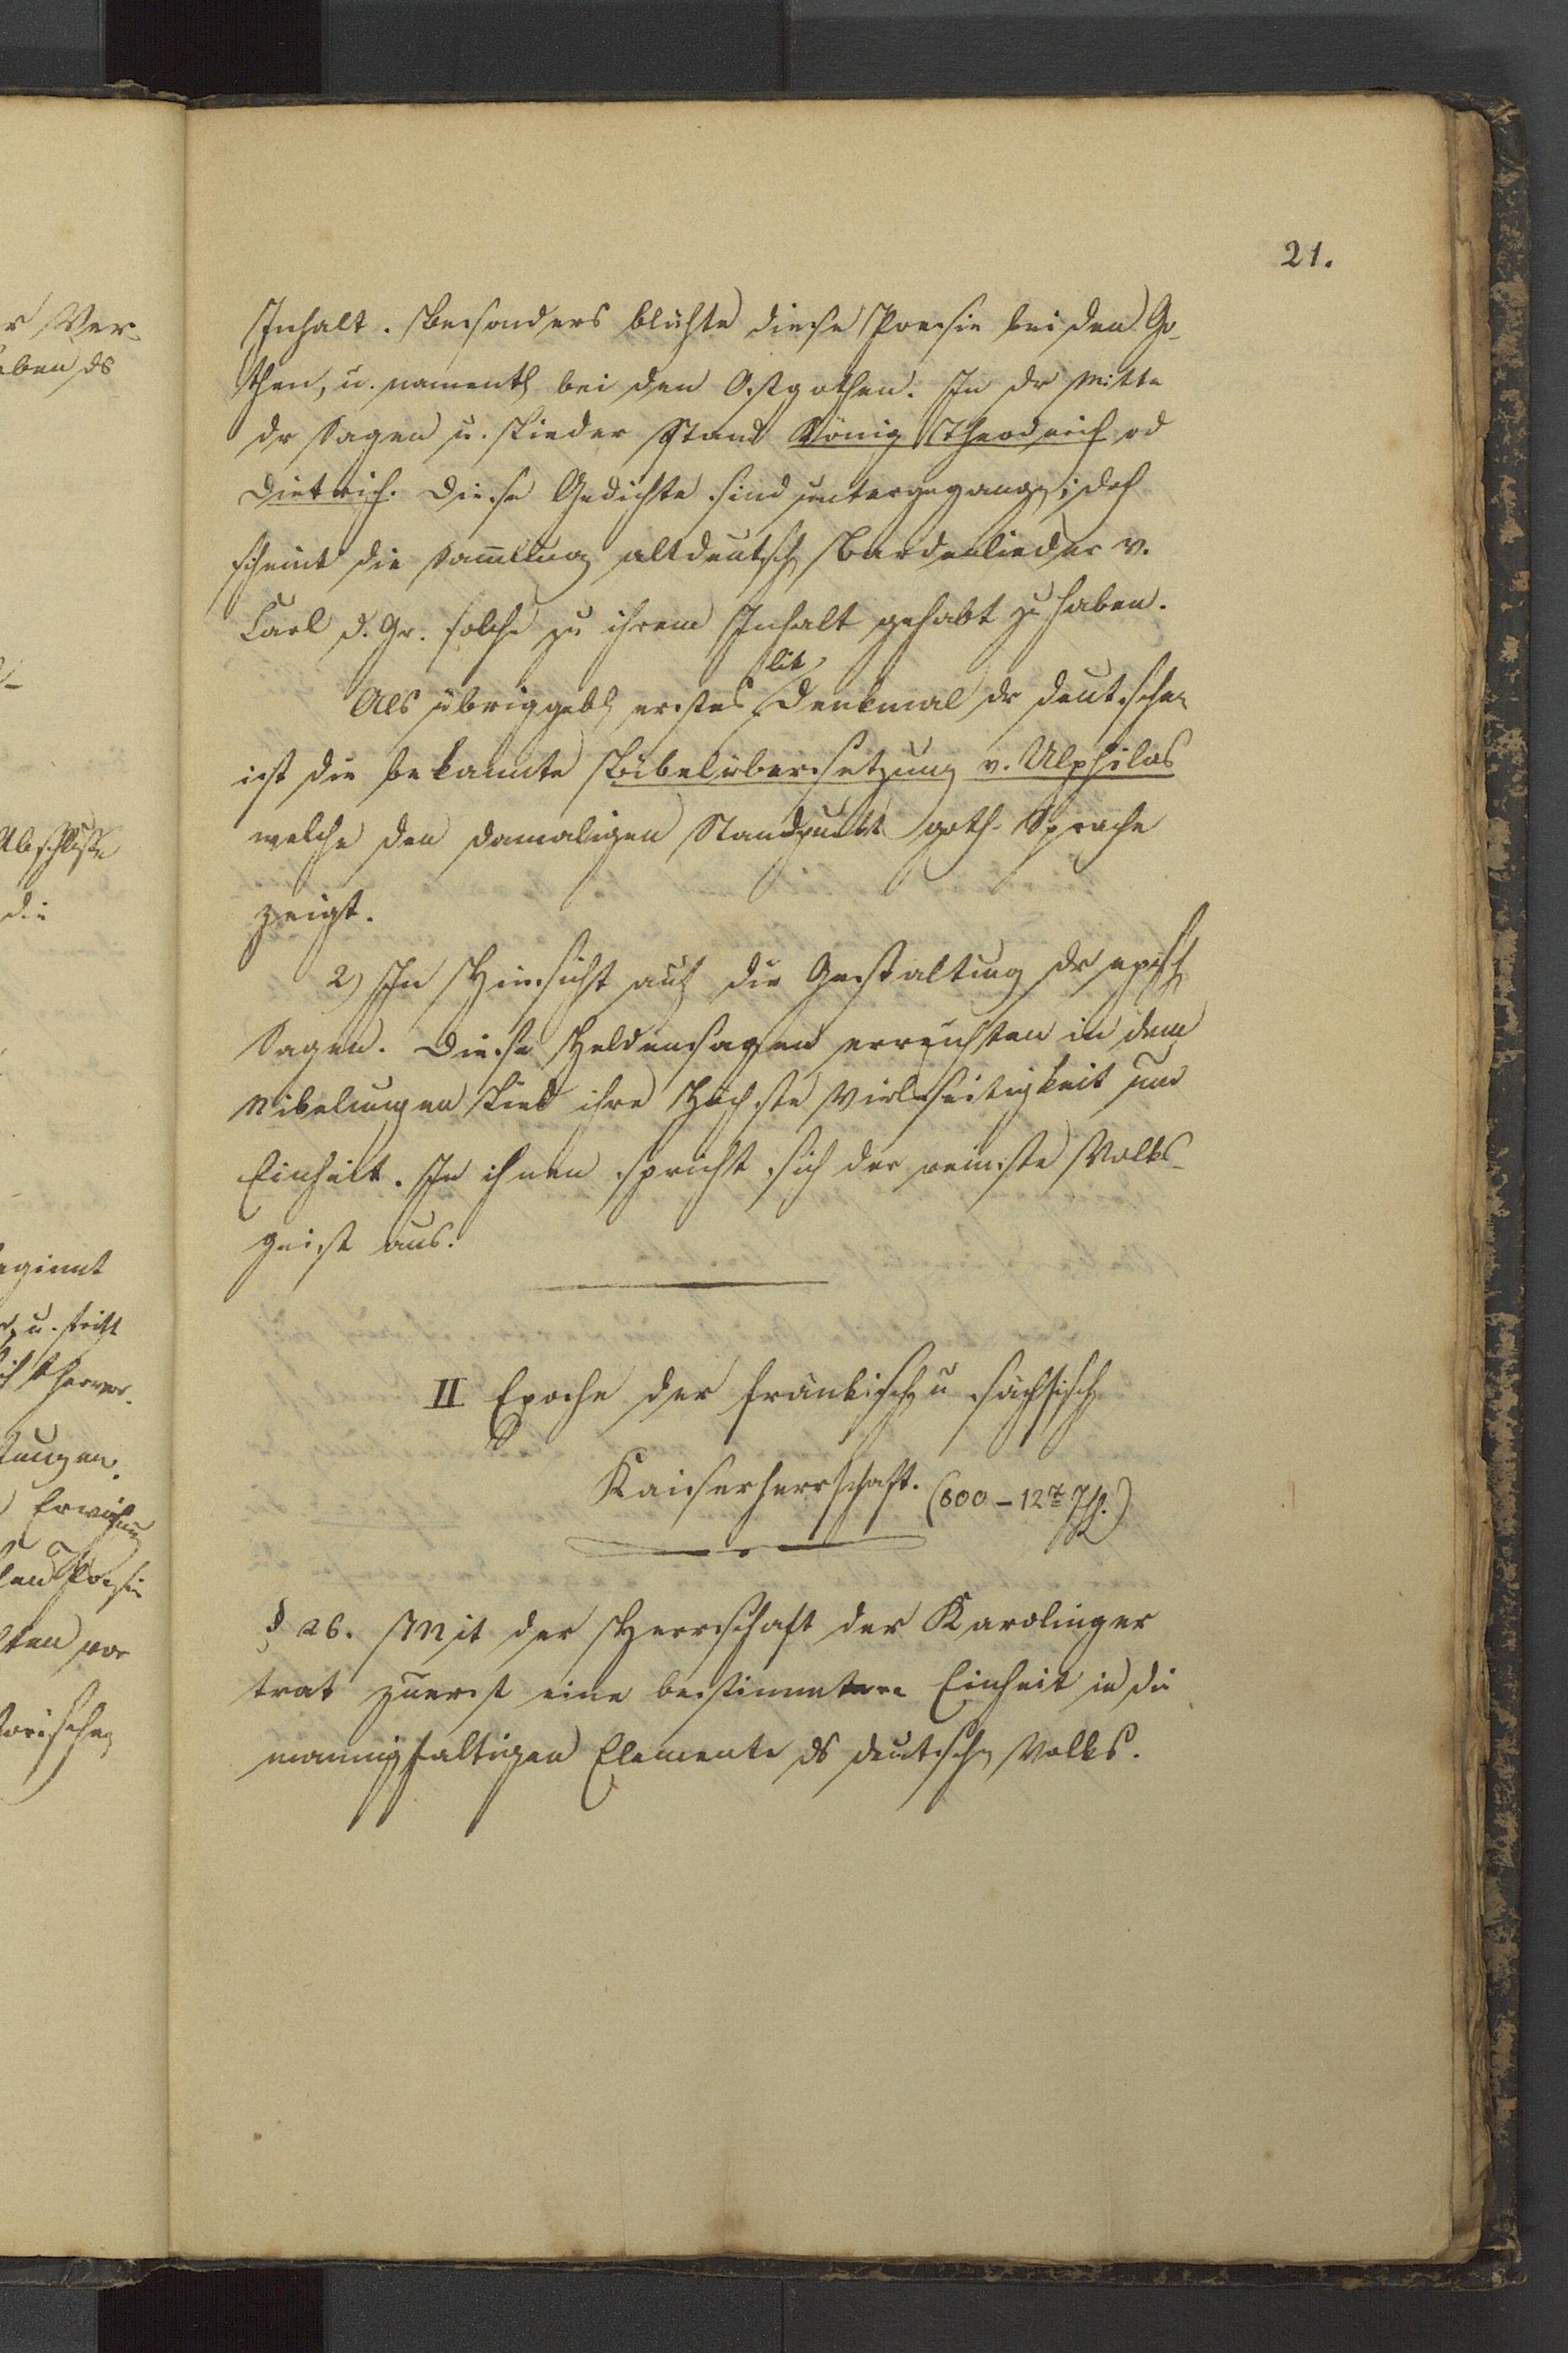 21.
Inhalt. Besonders blühte diese Poesie bei den Go-
then, u. namentl bei den Ostgothen. In dr Mitte
dr Sagen u. Lieder stand König Theodrich od
Dietrich. Diese Gedichte sind untergegang; doch
scheint die Samlung altdeutsch Bardenlieder v.
Carl d. Gr. solche zu ihrem Inhalt gehabt zu haben.
lit
Als übriggebl erstes Denkmal dr Deutschen
ist die bekannte Bibelübersetzung v. Ulphilas
welche den damaligen Standpunkt goth. Sprache
zeigt.
2) In Hinsicht auf die Gestaltung dr epsch
Sagen. Diese Heldensagen erreichten in dem
Nibelungen Lied ihre Höchste Vielseitigkeit und
Einheit. In ihnen spricht sich der reinste Volks-
geist aus.
II Epoche der fränkisch u sächsisch
Kaiserherrschaft. (800 – 12t Jh.)
§ 26. Mit der Herrschaft der Karolinger
trat zuerst eine bestimmtere Einheit in die
mannigfaltigen Elemente ds deutschn Volks.
r Ver-
aben ds
Abschluße
die
eginnt
u. tritt
hervor.
tungen.
Erwähnung
len Poesie
ten vor
torischen